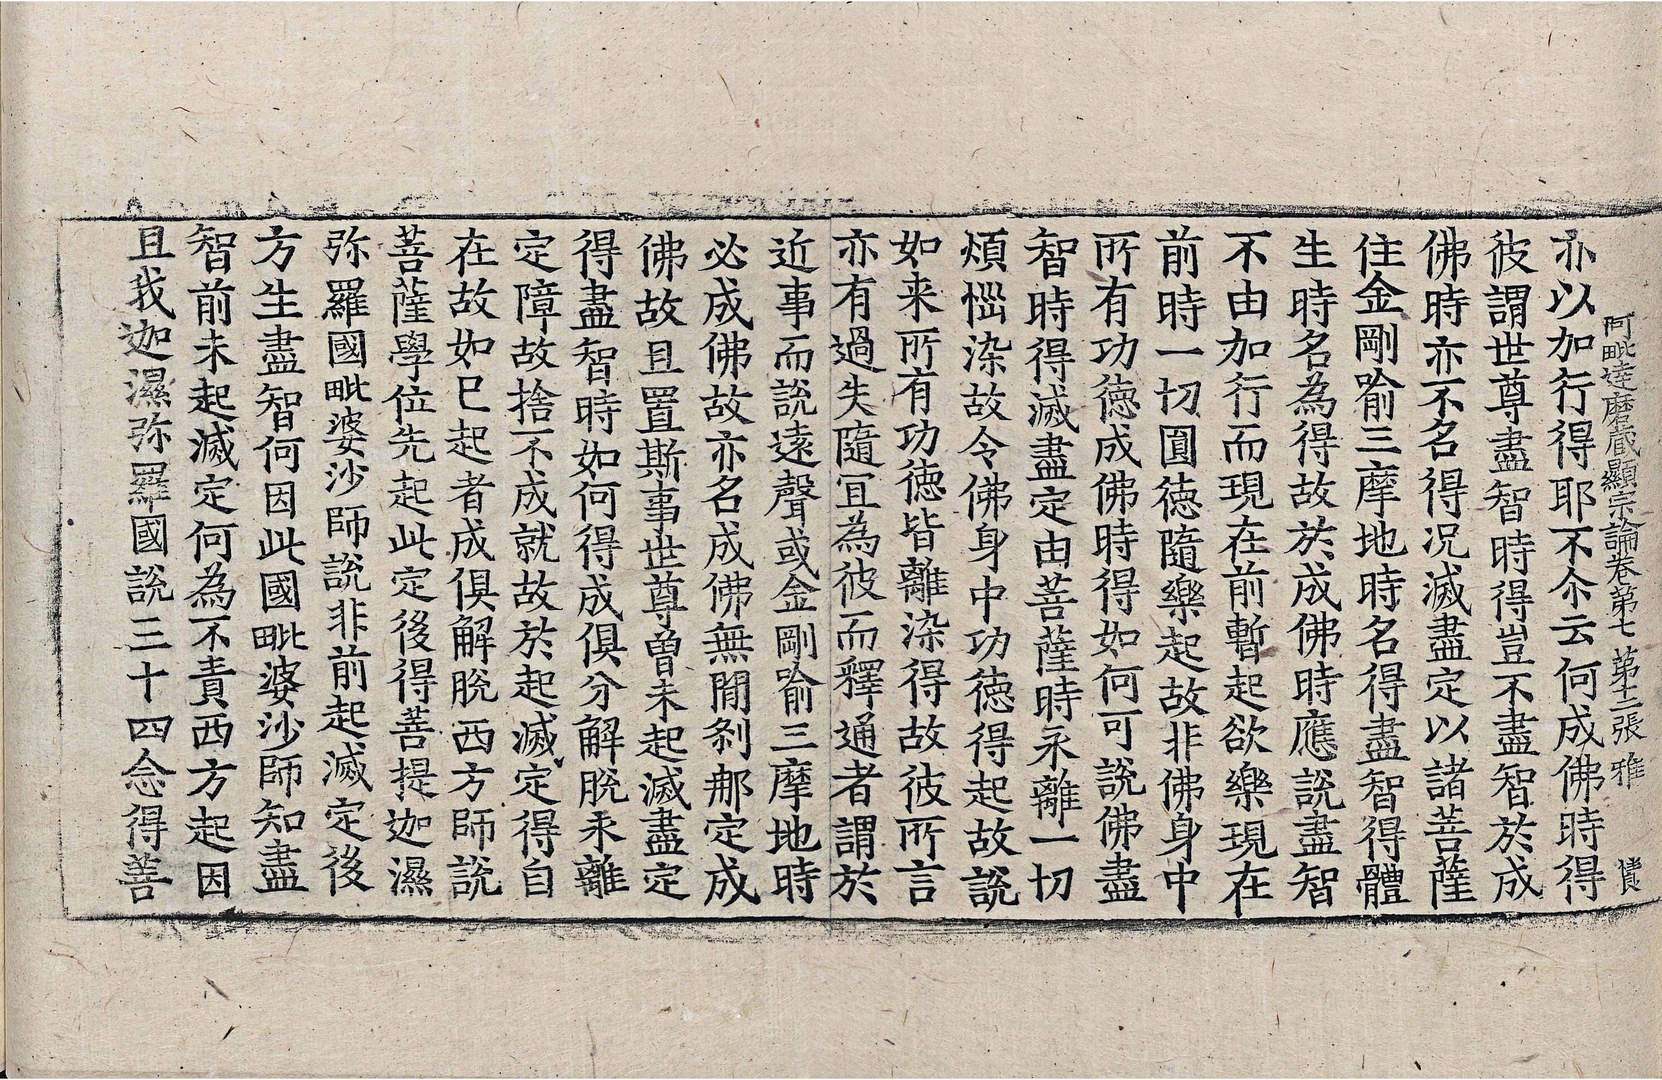 阿毗達磨藏顯宗論卷第七 第十二張 雅
亦以加行得耶不尒云何成佛時得
彼謂世尊盡智時得豈不盡智於成
佛時亦不名得況滅盡定以諸菩薩
住金剛喻三摩地時名得盡智得體
生時名為得故於成佛時應說盡智
不由加行而現在前暫起欲樂現在
前時一切圓德隨樂起故非佛身中
所有功德成佛時得如何可說佛盡
智時得滅盡定由菩薩時永離一切
煩惱染故令佛身中功德得起故說
如来所有功德皆離染得故彼所言
亦有過失隨冝為彼而釋通者謂於
近事而說遠聲或金剛喻三摩地時
必成佛故亦名成佛無間剎那定成
佛故且置斯事世尊曾未起滅盡定
得盡智時如何得成俱分解脫永離
定障故捨不成就故於起滅定得自
在故如已起者成俱解脫西方師說
菩薩學位先起此定後得菩提迦濕
弥羅國毗婆沙師說非前起滅定後
方生盡智何因此國毗婆沙師知盡
智前未起滅定何為不責西方起因
且我迦濕弥羅國說三十四念得菩